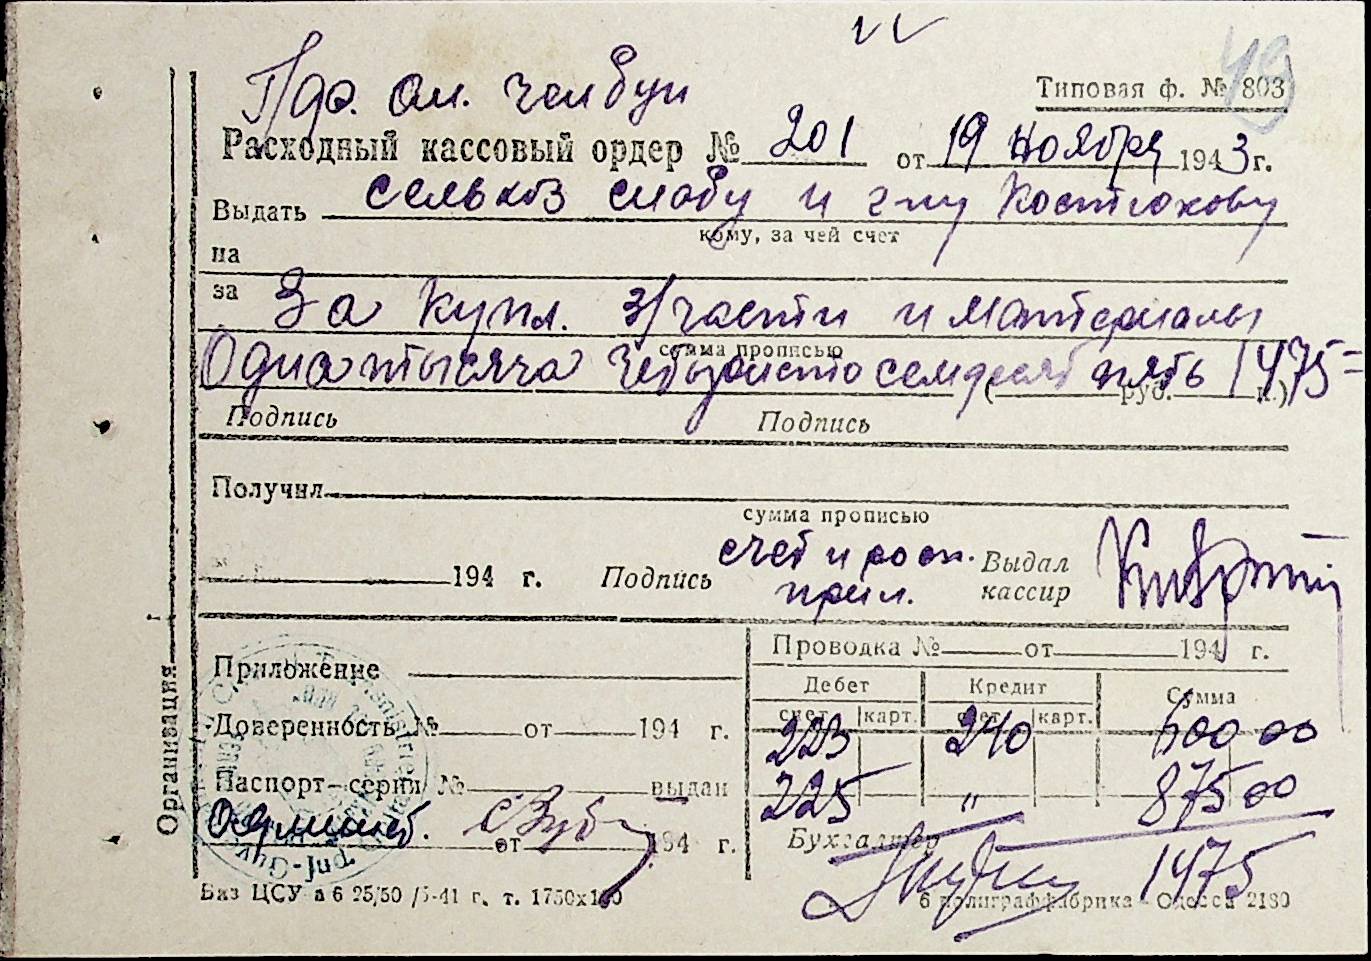 49
Типовая ф. № 803
Расходный кассовый ордер № 201 от 19 ноября 1943 г.
Выдать сельхоз снабу и г-ну Костюкову
кому, за чей счет
на
за За купл. з/части и материалы
сумма прописью
Одна тысяча четыреста семдесят пять 1475=
( руб. к.)
Подпись Подпись
Получил
сумма прописью
194 г. Подпись счет и росп. прил. Выдал кассир
Приложение
Проводка № от 194 г.
Дебет Кредит Сумма
счет карт. счет карт.
Доверенность № от 194 г.
223 240 600 00
Паспорт-серия № выдан
225 " 875 00
от 194 г.
Бухгалтер
1475
Организация
Биз ЦСУ а 6 25/50 /5-41 г. т. 1750х100
6 полиграффабрика - Одесса 2180